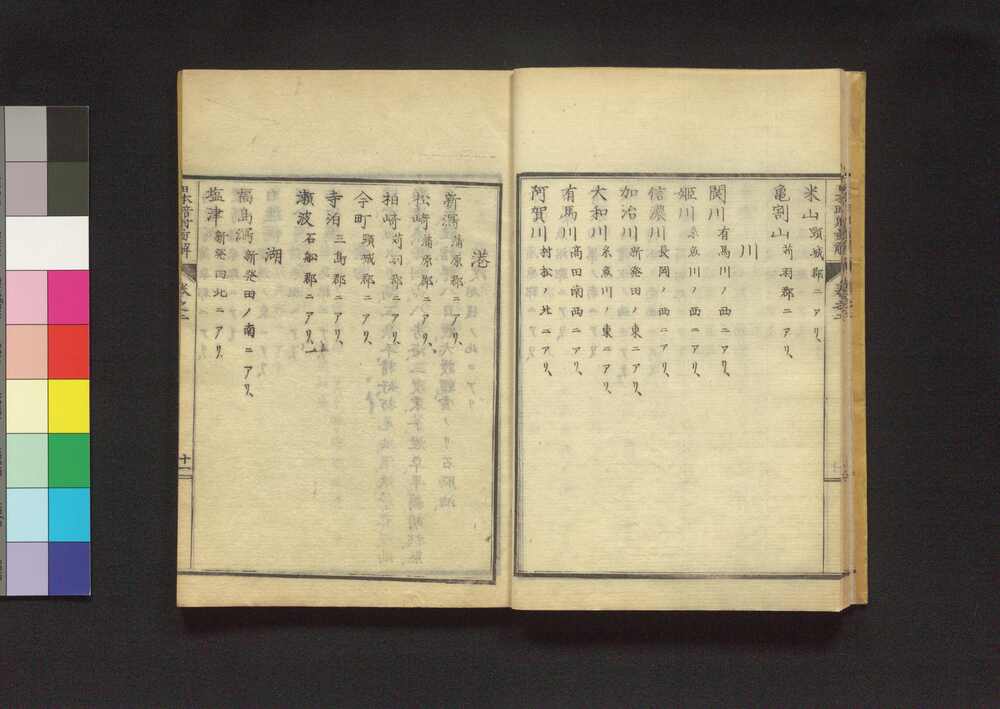 米山 頸城郡ニアリ、
亀割山 苅羽郡ニアリ、
川
関川 有馬川ノ西ニアリ、
姫川 糸魚川ノ西ニアリ、
信濃川 長岡ノ西ニアリ、
加治川 新発田ノ東ニアリ、
大和川 糸魚川ノ東ニアリ、
有馬川 高田南西ニアリ、
阿賀川 村松ノ北ニアリ、
港
新潟 蒲原郡ニアリ、
松崎 蒲原郡ニアリ、
柏崎 苅羽郡ニアリ、
今町 頸城郡ニアリ、
寺泊 三島郡ニアリ、
瀬波 石船郡ニアリ、
湖
福島潟 新発田ノ南ニアリ、
塩津 新発田北ニアリ、
十一